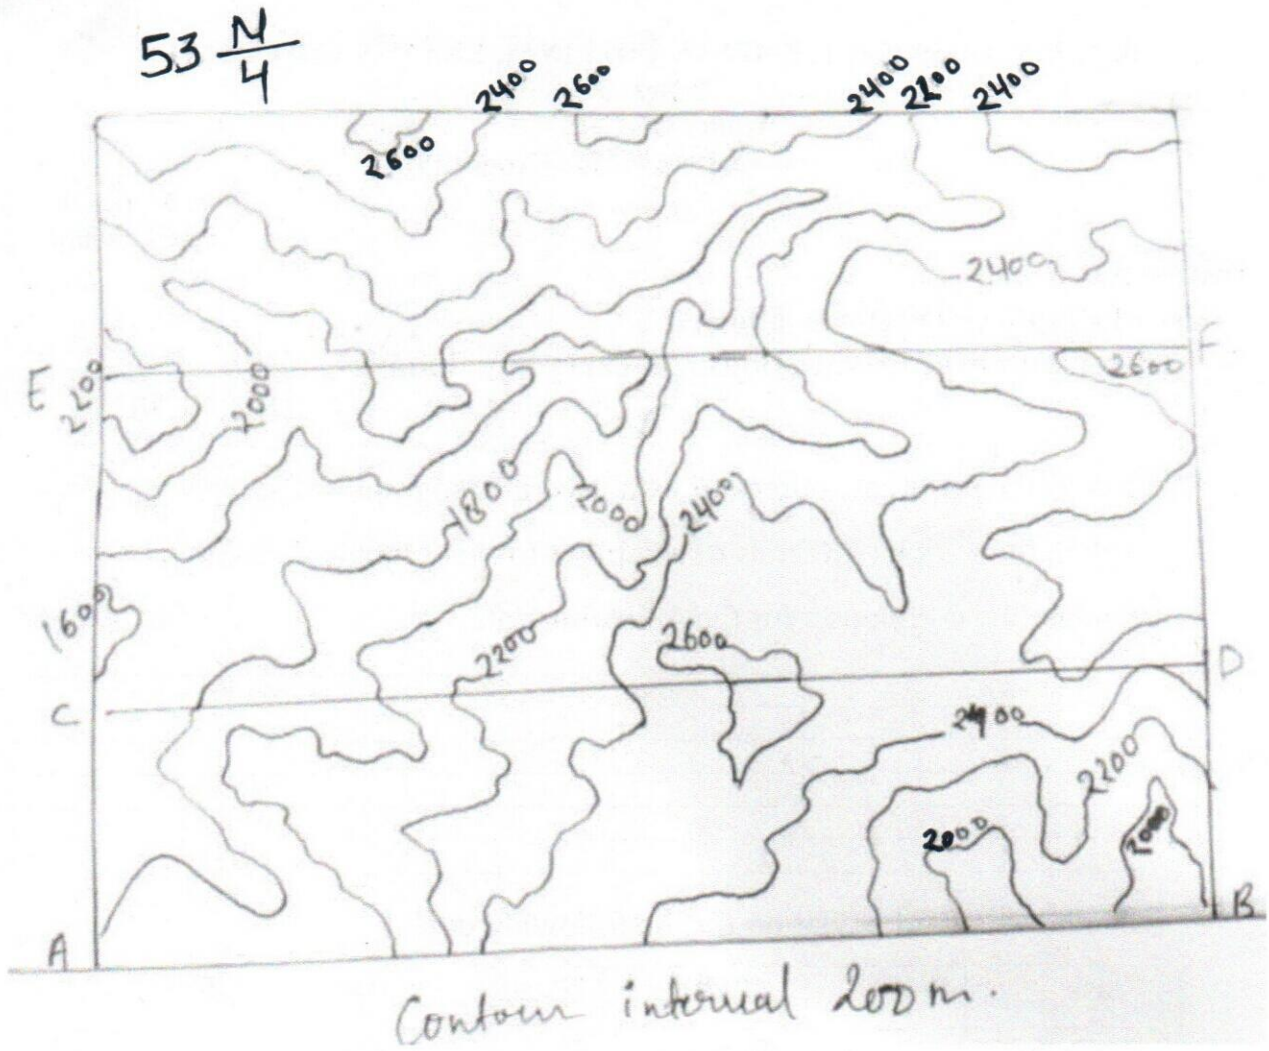 53 N/4
2400 2600 2400 2200 2400
2600
2400
E
F
2200
2000
2600
1800
2000
2400
1600
2200
2600
D
C
2400
2200
2000
2000
A
B
Contour interval 200 m.